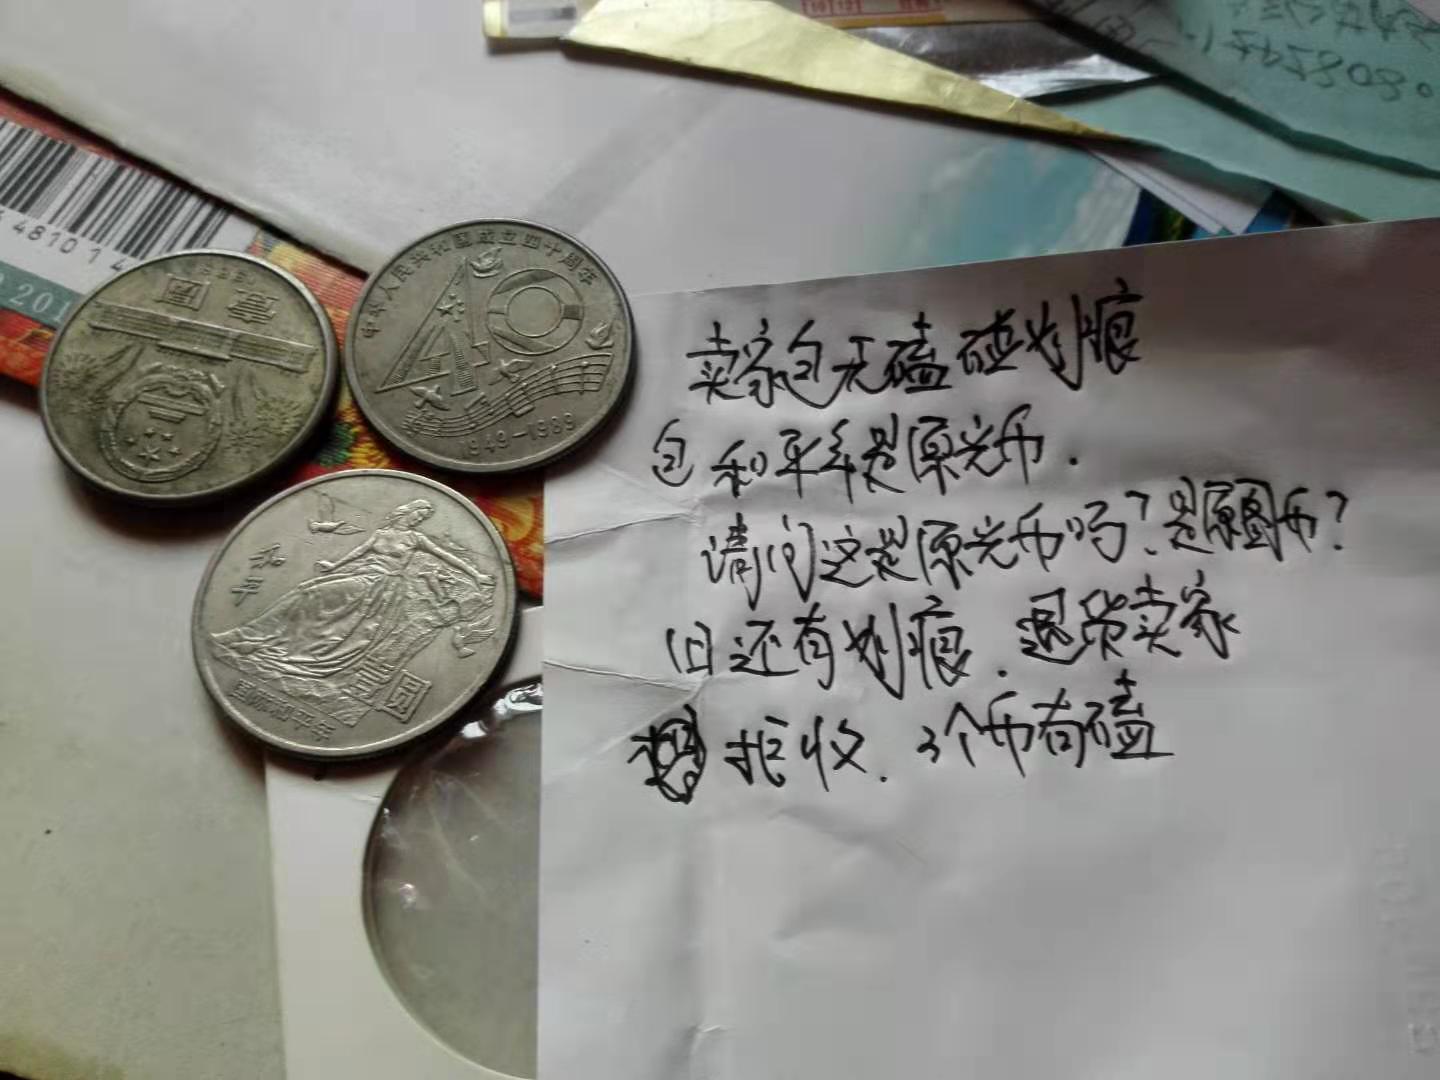 4481014
201
1985
壹圓
中华人民共和国成立四十周年
40
1949-1989
和平
壹圆
国际和平年
卖家包无磕碰划痕
包和平年是原光币.
请问这是原光币吗？是原圖币？
旧还有划痕.退货卖家
拒收.3个币有磕